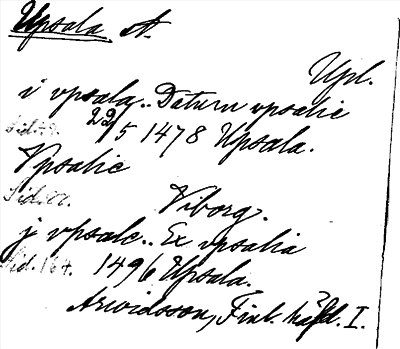 Upsala st.
Upl.
i vpsala.. Datum vpsalie
Sid. 22/5 1478 Upsala.
Vpsalie
Sid.
Viborg.
j vpsale.. Ex vpsalia
Sid. 164. 1496 Upsala.
Arwidsson, Finl. häfd. I.